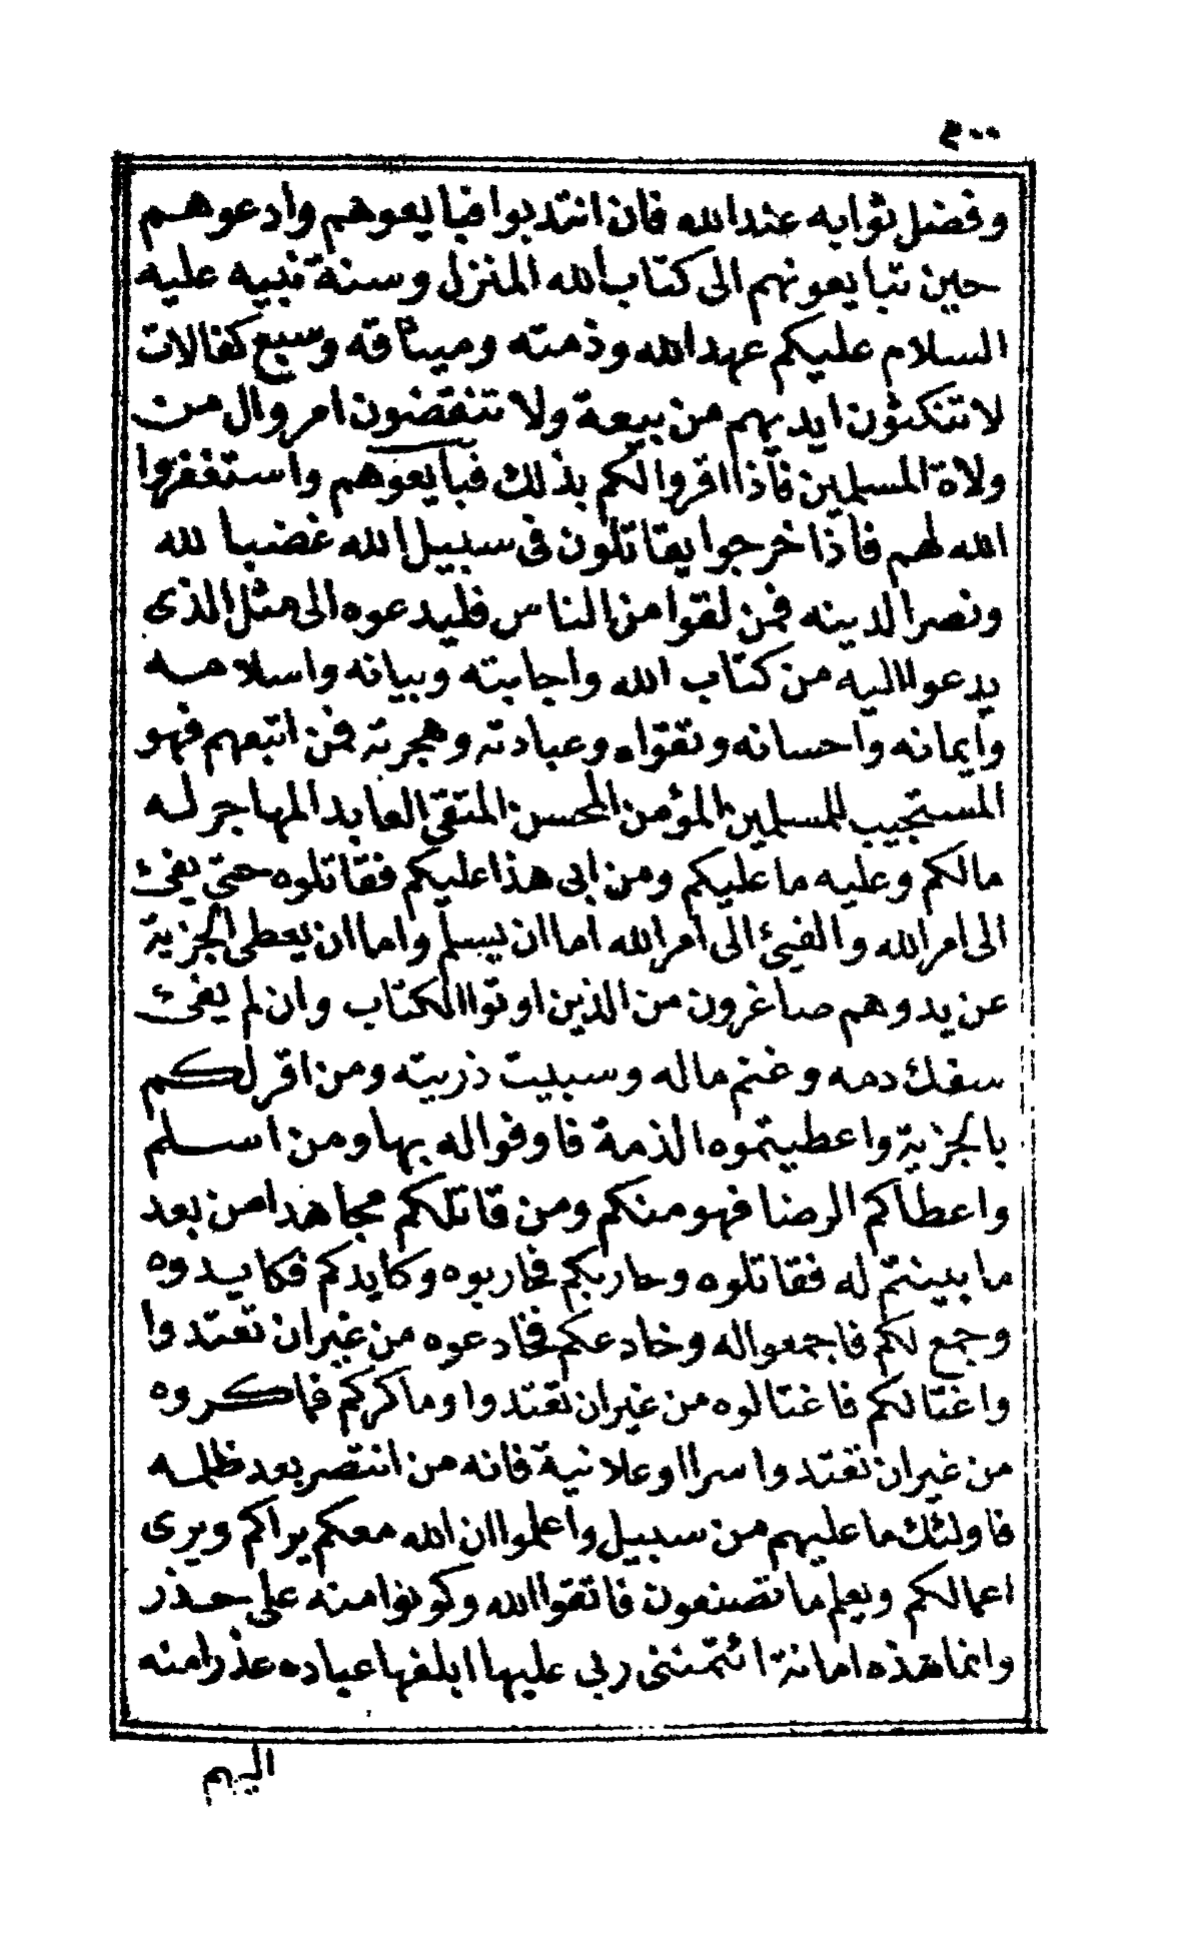 ٢٠٠
وفضل ثوابه عند الله فان انتدبوا فبايعوهم وادعوهم
حين تبايعونهم الى كتاب الله المنزل وسنة نبيه عليه
السلام عليكم عهد الله وذمته وميثاقه وسبع كفالات
لا تنكثون ايديهم من بيعة ولا تنقضون امر وال من
ولاة المسلمين فاذا اقروا لكم بذلك فبايعوهم واستغفروا
الله لهم فاذا خرجوا يقاتلون فى سبيل الله غضبا لله
ونصرا لدينه فمن لقوا من الناس فليدعوه الى مثل الذى
يدعوا اليه من كتاب الله واجابته وبيانه واسلامه
وايمانه واحسانه وتقواه وعبادته وهجرته فمن اتبعهم فهو
المستجيب للمسلمين المؤمن المحسن المتقى العابد المهاجر له
مالكم وعليه ما عليكم ومن ابى هذا عليكم فقاتلوه حتى يفئ
الى امر الله والفيئ الى امر الله اما ان يسلم واما ان يعطى الجزية
عن يد وهم صاغرون من الذين اوتوا الكتاب وان لم يفئ
سفك دمه وغنم ماله وسبيت ذريته ومن اقر لكم
بالجزية واعطيتموه الذمة فاوفوا له بها ومن اسلم
واعطاكم الرضا فهو منكم ومن قاتلكم مجاهدا من بعد
ما بينتم له فقاتلوه وحاربكم فحاربوه وكايدكم فكايدوه
وجمع لكم فاجمعوا له وخادعكم فخادعوه من غير ان تعتدوا
واغتالكم فاغتالوه من غير ان تعتدوا وماكركم فماكروه
من غير ان تعتدوا سرا اوعلانية فانه من انتصر بعد ظلمه
فاولئك ما عليهم من سبيل واعلموا ان الله معكم يراكم ويرى
اعمالكم ويعلم ما تصنعون فاتقوا الله وكونوا منه على حذر
وانما هذه امانة ائتمننى ربى عليها ابلغها عباده عذرا منه
اليهم